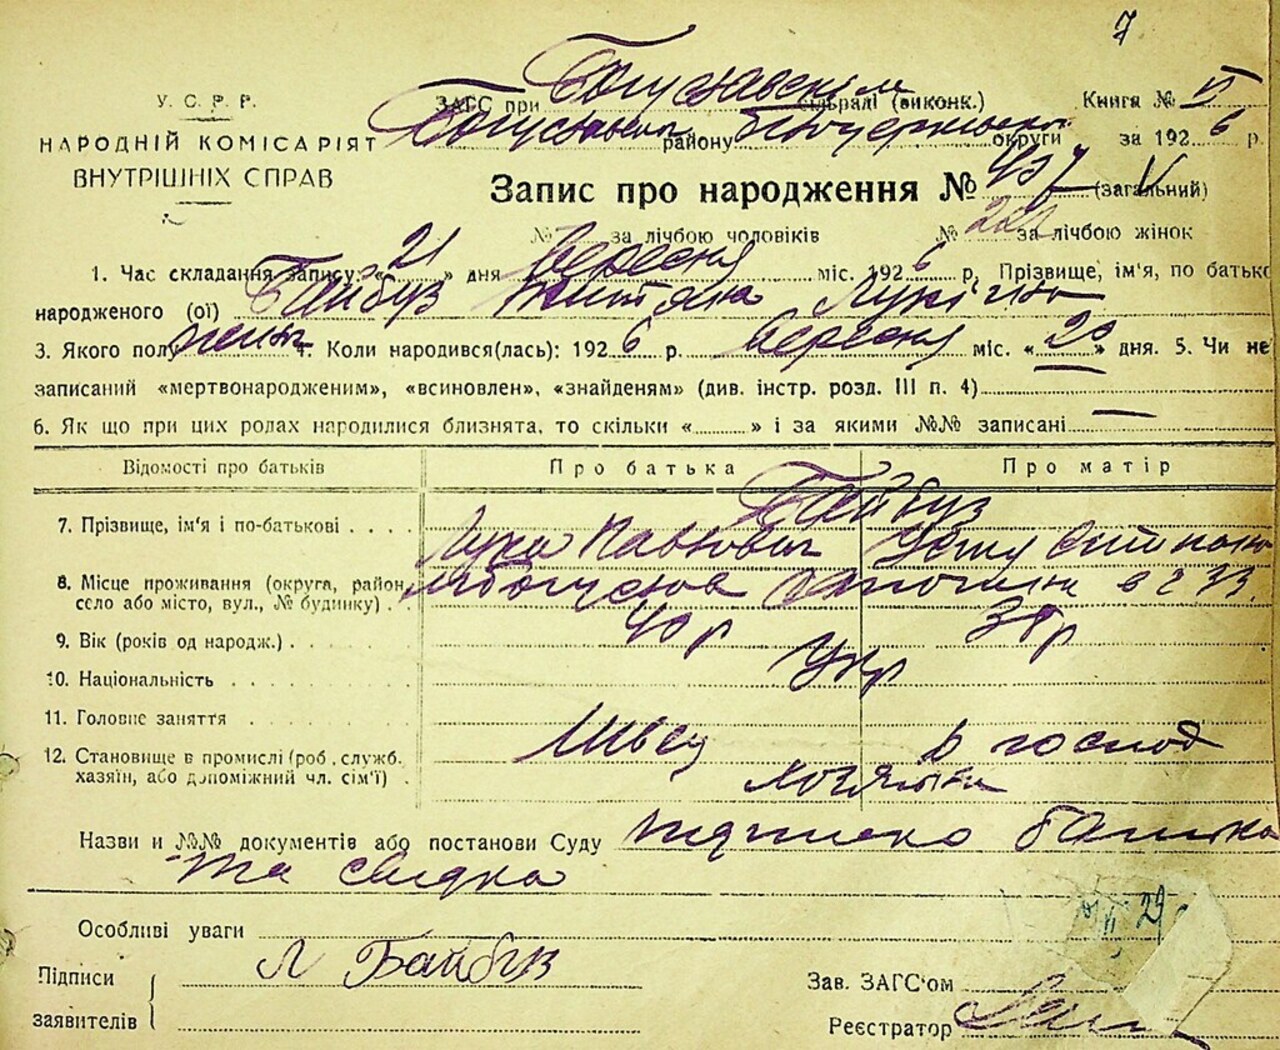 7
У. С. Р. Р.
НАРОДНІЙ КОМІСАРІЯТ
ВНУТРІШНІХ СПРАВ
ЗАГС при Богуславскім сільраді (виконк.) Книга № VI
Богуславськ району Білоцерківської округи за 1926 р.
Запис про народження № 407 (загальний) V
№ за лічбою чоловіків № за лічбою жінок
1. Час складання запису: „21" дня Вересня міс. 1926 р. Прізвище, ім'я, по батьков
народженого (ої) Байбуз Лукічна
3. Якого полу жіноч 4. Коли народився(лась): 1926 р. вересня міс. «20» дня. 5. Чи не
записаний «мертвонародженим», «всиновлен», «знайденям» (див. інстр. розд. III п. 4) —
6. Як що при цих ролах народилися близнята, то скільки «......» і за якими №№ записані —
Відомості про батьків Про батька Про матір
Байбуз
7. Прізвище, ім'я і по-батькові Лука Павлович
8. Місце проживання (округа, район, село або місто, вул., № будинку) м Богуслав
9. Вік (років од народж.) 40 р 38 р
10. Національність Укр
11. Головне заняття
Швец в господ
12. Становище в промислі (роб., служб. хазяїн, або допоміжний чл. сім'ї)
Назви и №№ документів або постанови Суду батька
та свідка
Особливі уваги
Підписи заявителів Л Байбуз
Зав. ЗАГС'ом
Реєстратор